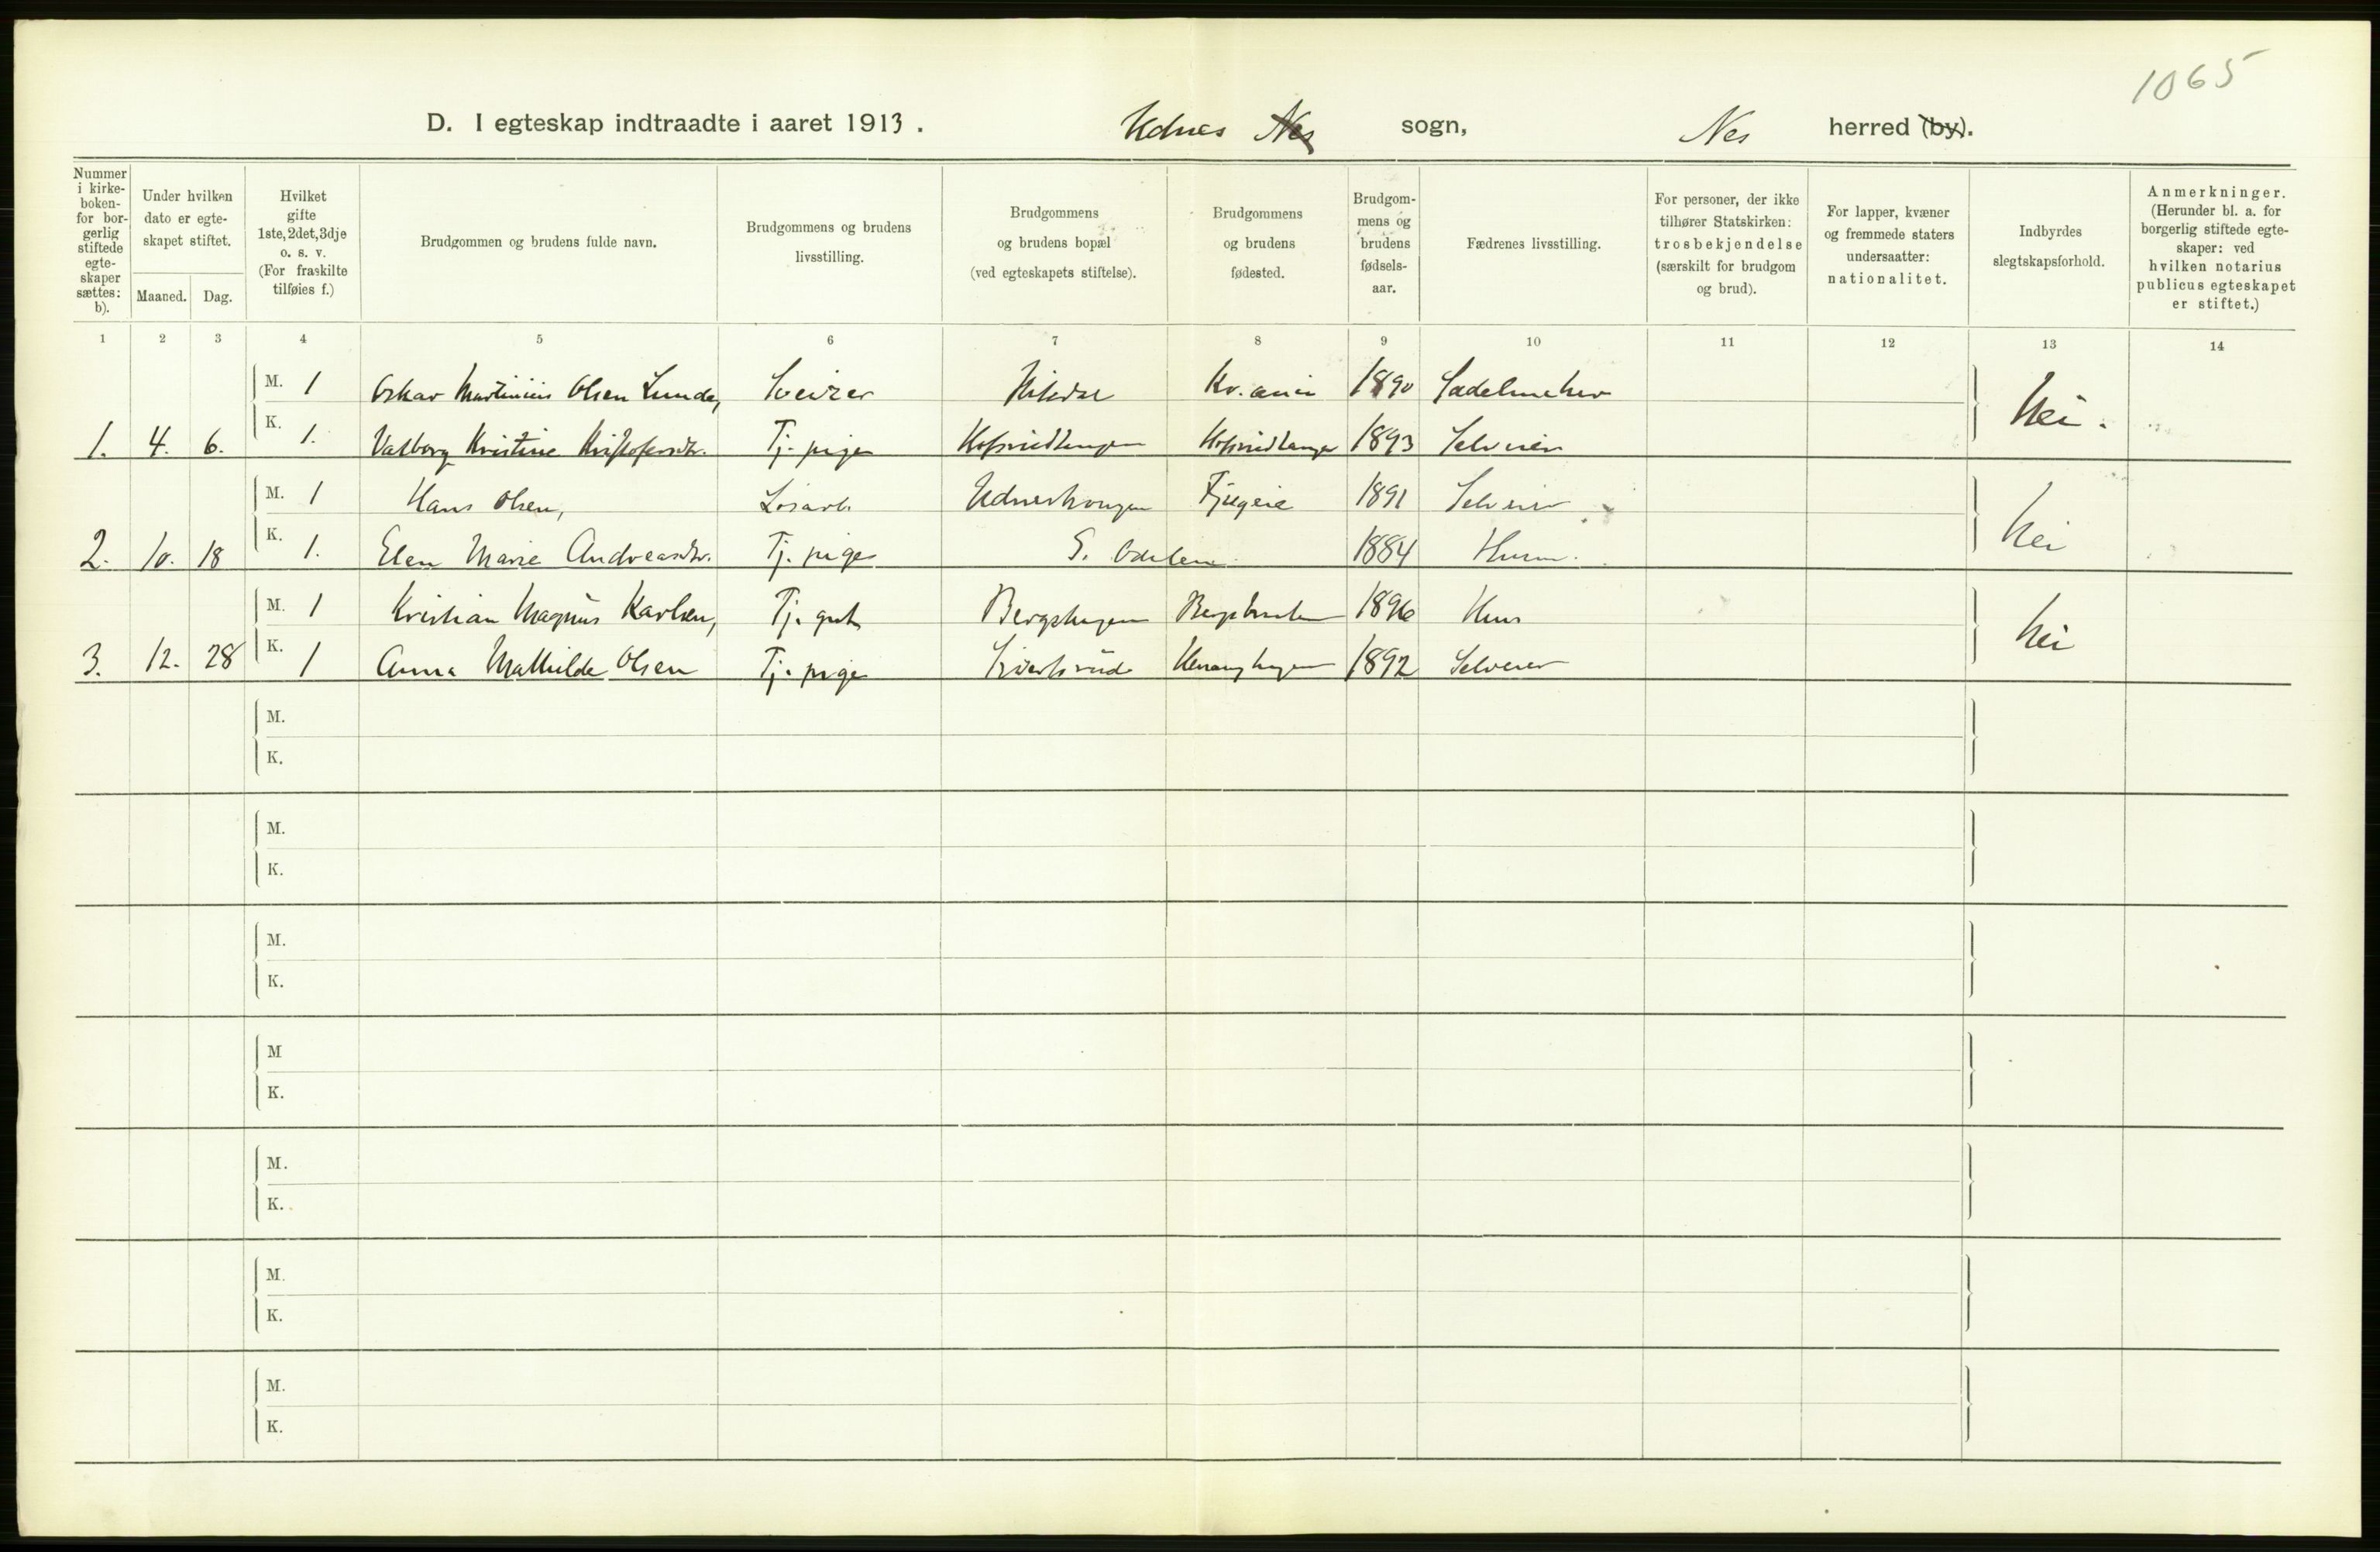 1065
D. I egteskap indtraadte i aaret 1913. Udnes Nes sogn, Nes herred (by).
Nummer i kirkeboken- for borgerlig stiftede egteskaper sættes: b).
Under hvilken dato er egteskapet stiftet.
Maaned. Dag.
Hvilket gifte 1ste, 2det, 3dje o. s. v. (For fraskilte tilføies f.)
Brudgommen og brudens fulde navn.
Brudgommens og brudens livsstilling.
Brudgommens og brudens bopæl (ved egteskapets stiftelse).
Brudgommens og brudens fødested.
Brudgommens og brudens fødselsaar.
Fædrenes livsstilling.
For personer, der ikke tilhører Statskirken: trosbekjendelse (særskilt for brudgom og brud).
For lapper, kvæner og fremmede staters undersaatter: nationalitet.
Indbyrdes slegtskapsforhold.
Anmerkninger. (Herunder bl. a. for borgerlig stiftede egteskaper: ved hvilken notarius publicus egteskapet er stiftet.)
1 2 3 4 5 6 7 8 9 10 11 12 13 14
M. 1 Oskar Martinius Olsen Lunde, Sveizer Kr.ania 1890 Sadelmaker
Nei.
1. 4. 6. K. 1. Valborg Kristine Kristofersdtr. Tj. pige 1893 Selveier
M. 1 Hans Olsen, Løsarb. 1891 Selveier
Nei
2. 10. 18 K. 1. Elen Marie Andreasdtr. Tj. pige S. Odalen 1884 Husm.
M. 1 Kristian Magnus Karlsen, Tj. gut Bergshagen 1896 Hus
Nei
3. 12. 28 K. 1 Anna Mathilde Olsen Tj. pige 1892 Selveier
M.
K.
M.
K.
M.
K.
M
K.
M.
K.
M.
K.
M.
K.